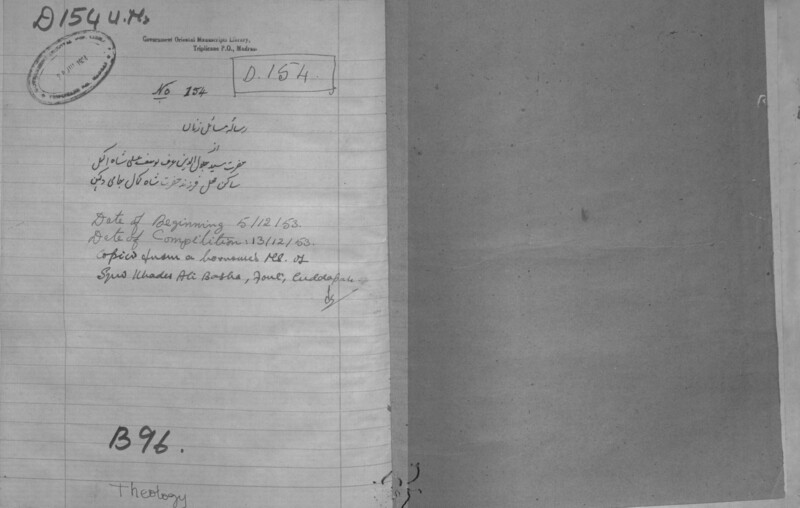 D 154 U.Ms
Government Oriental Manuscripts Library,
Triplicane P.O., Madras
D. 154
No 154
رساله مسائل زنان
از
حضرت سید جمال الدین عرف یوسف علی شاه اکمل
ساکن فرزند حضرت شاه کمال
Date of Beginning 5/12/53
Date of Complition: 13/12/53
Copied from a borrowed Ms. of
Syed Khader Ali Basha, Fort, Cuddapah
B 96.
Theology